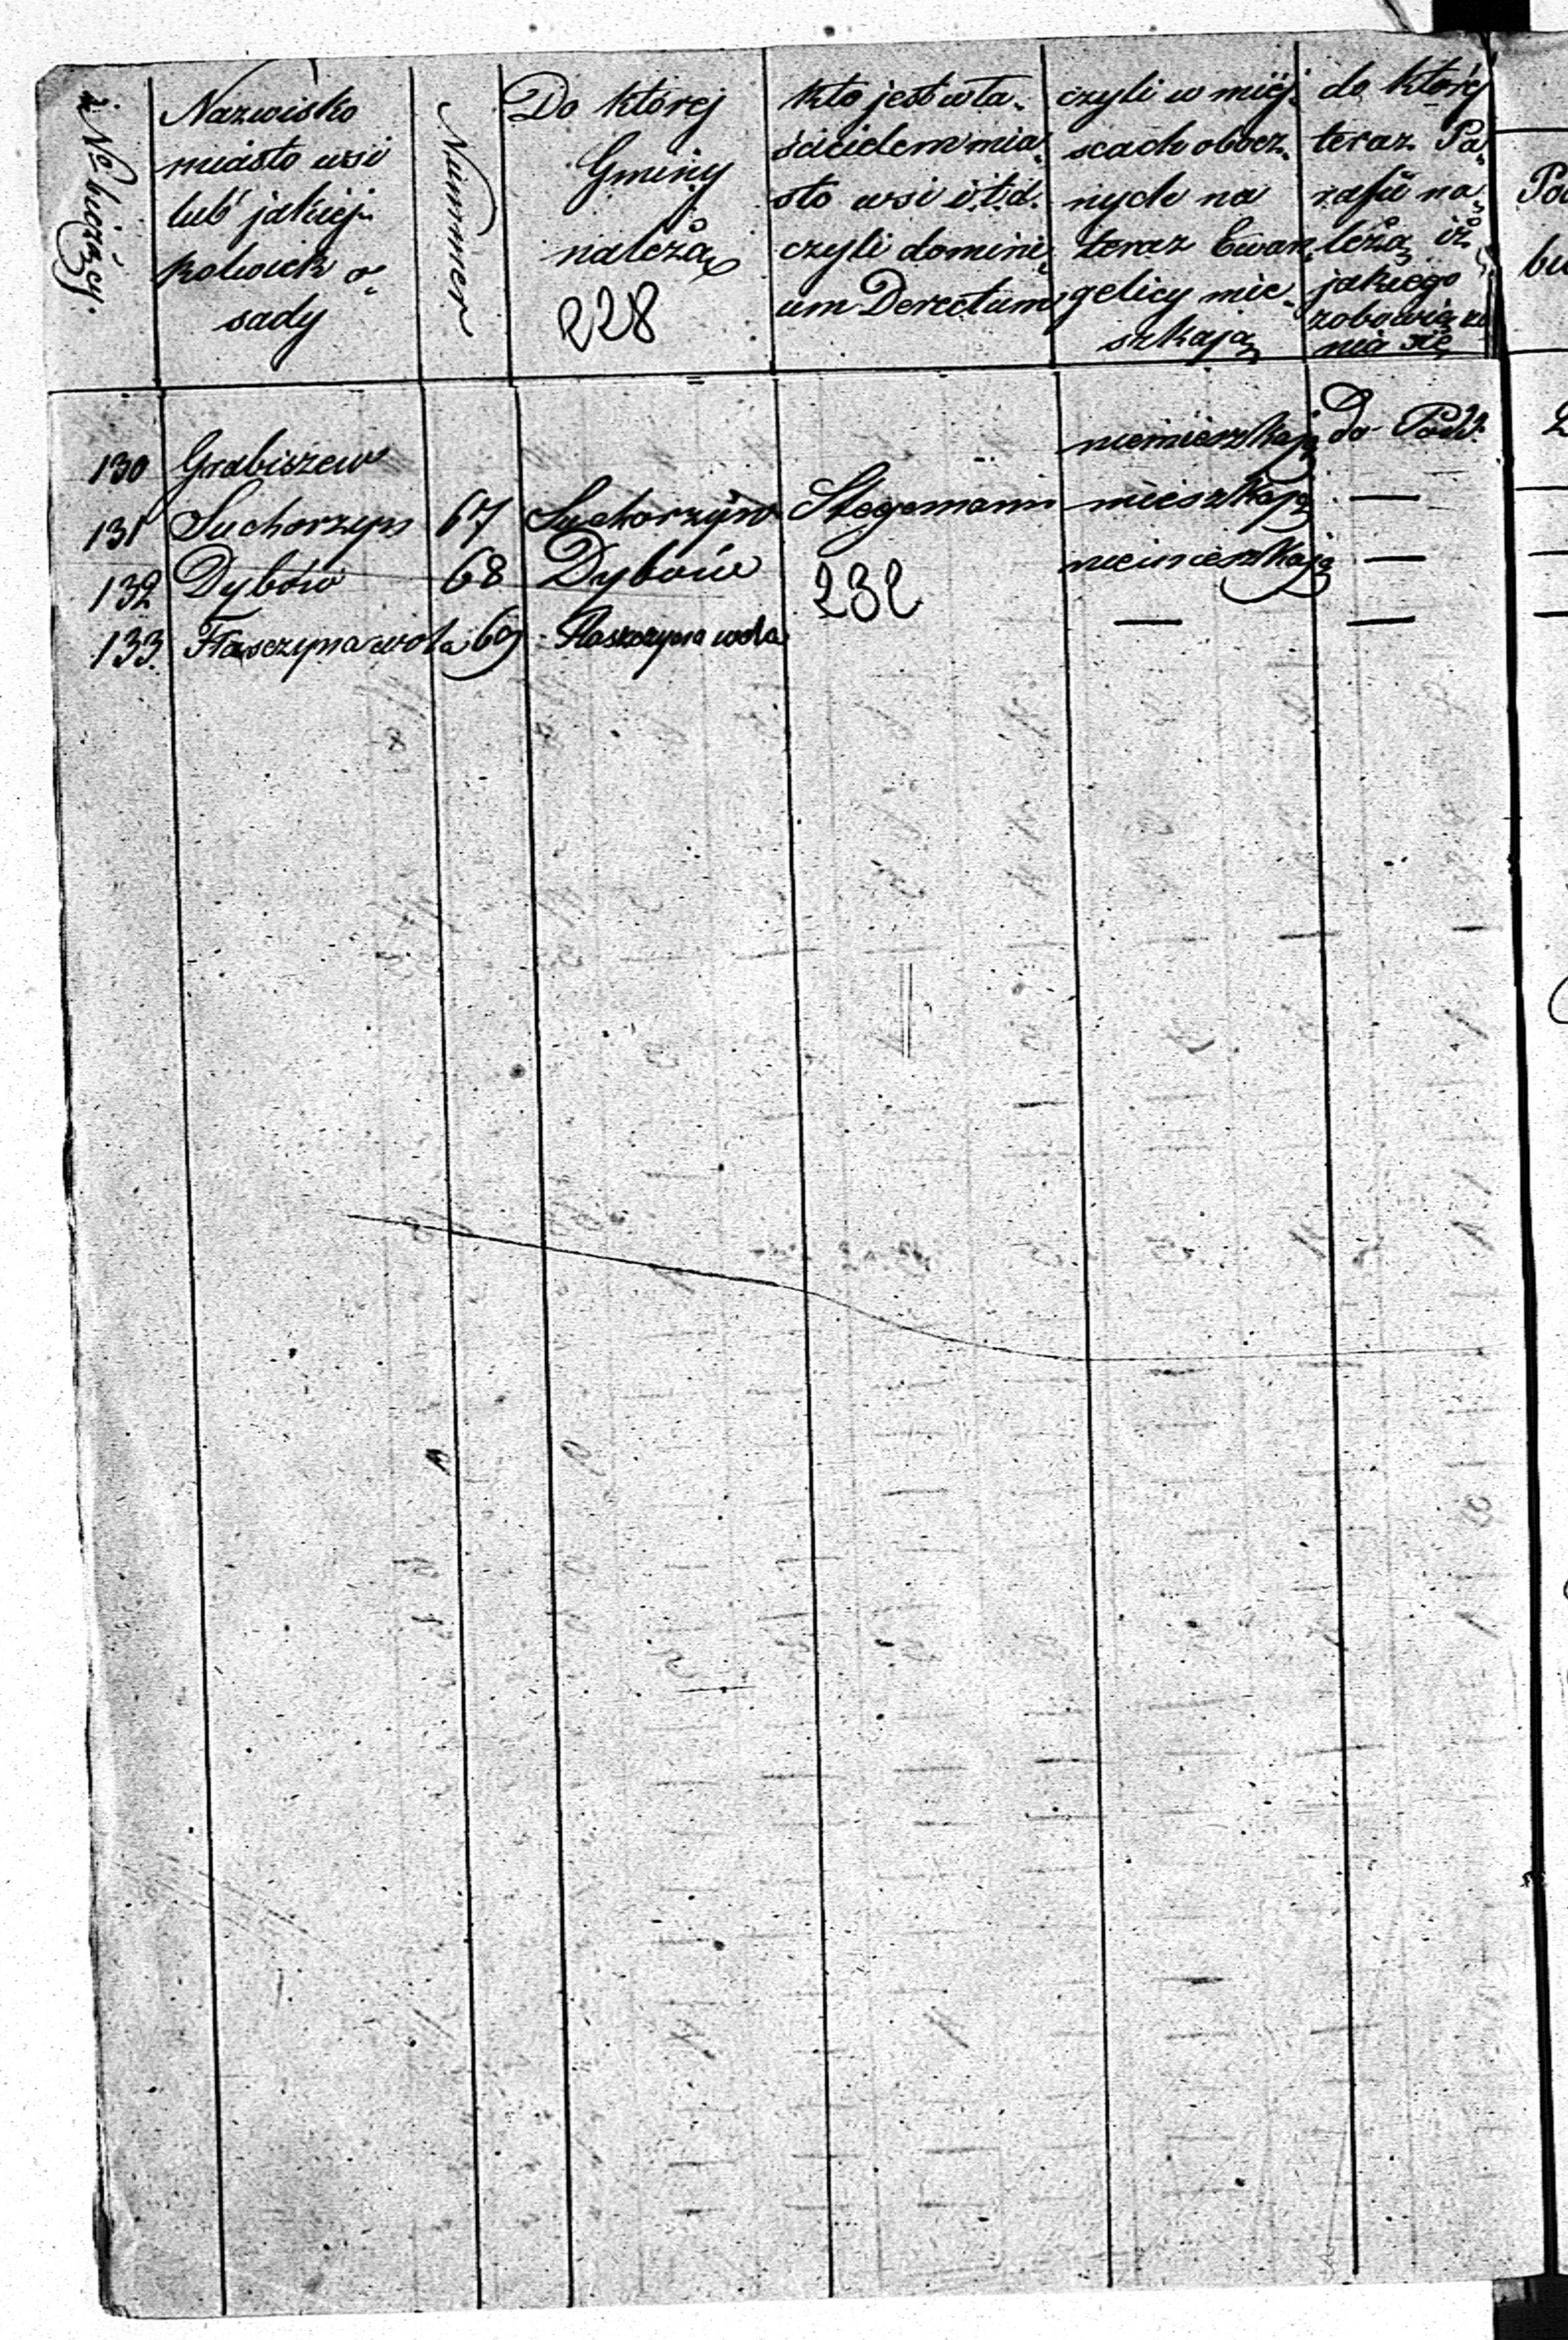 No bieżący.
Nazwisko
miasto wsi
lub jakiej-
kolwiek o-
sady
Nummer
Do której
Gminy
należą
228
kto jest wła-
ścicielem mia-
sto wsi i.t.d.
czyli domini-
um Derectum
czyli w miej-
scach obocz-
nych na
teraz Ewan-
gelicy mie-
szkają
do której
teraz Pa-
rafii na-
leżą iż
jakiego
zobowiąza
nia się
130 Grabiszew niemieszkają Do Podd.
131 Suchorzyn 67 Suchorzyn Stegemann mieszkają —
132 Dybów 68 Dybów niemieszkają —
232
133. Flasczyna wola 69 Flaszczyna wola — —